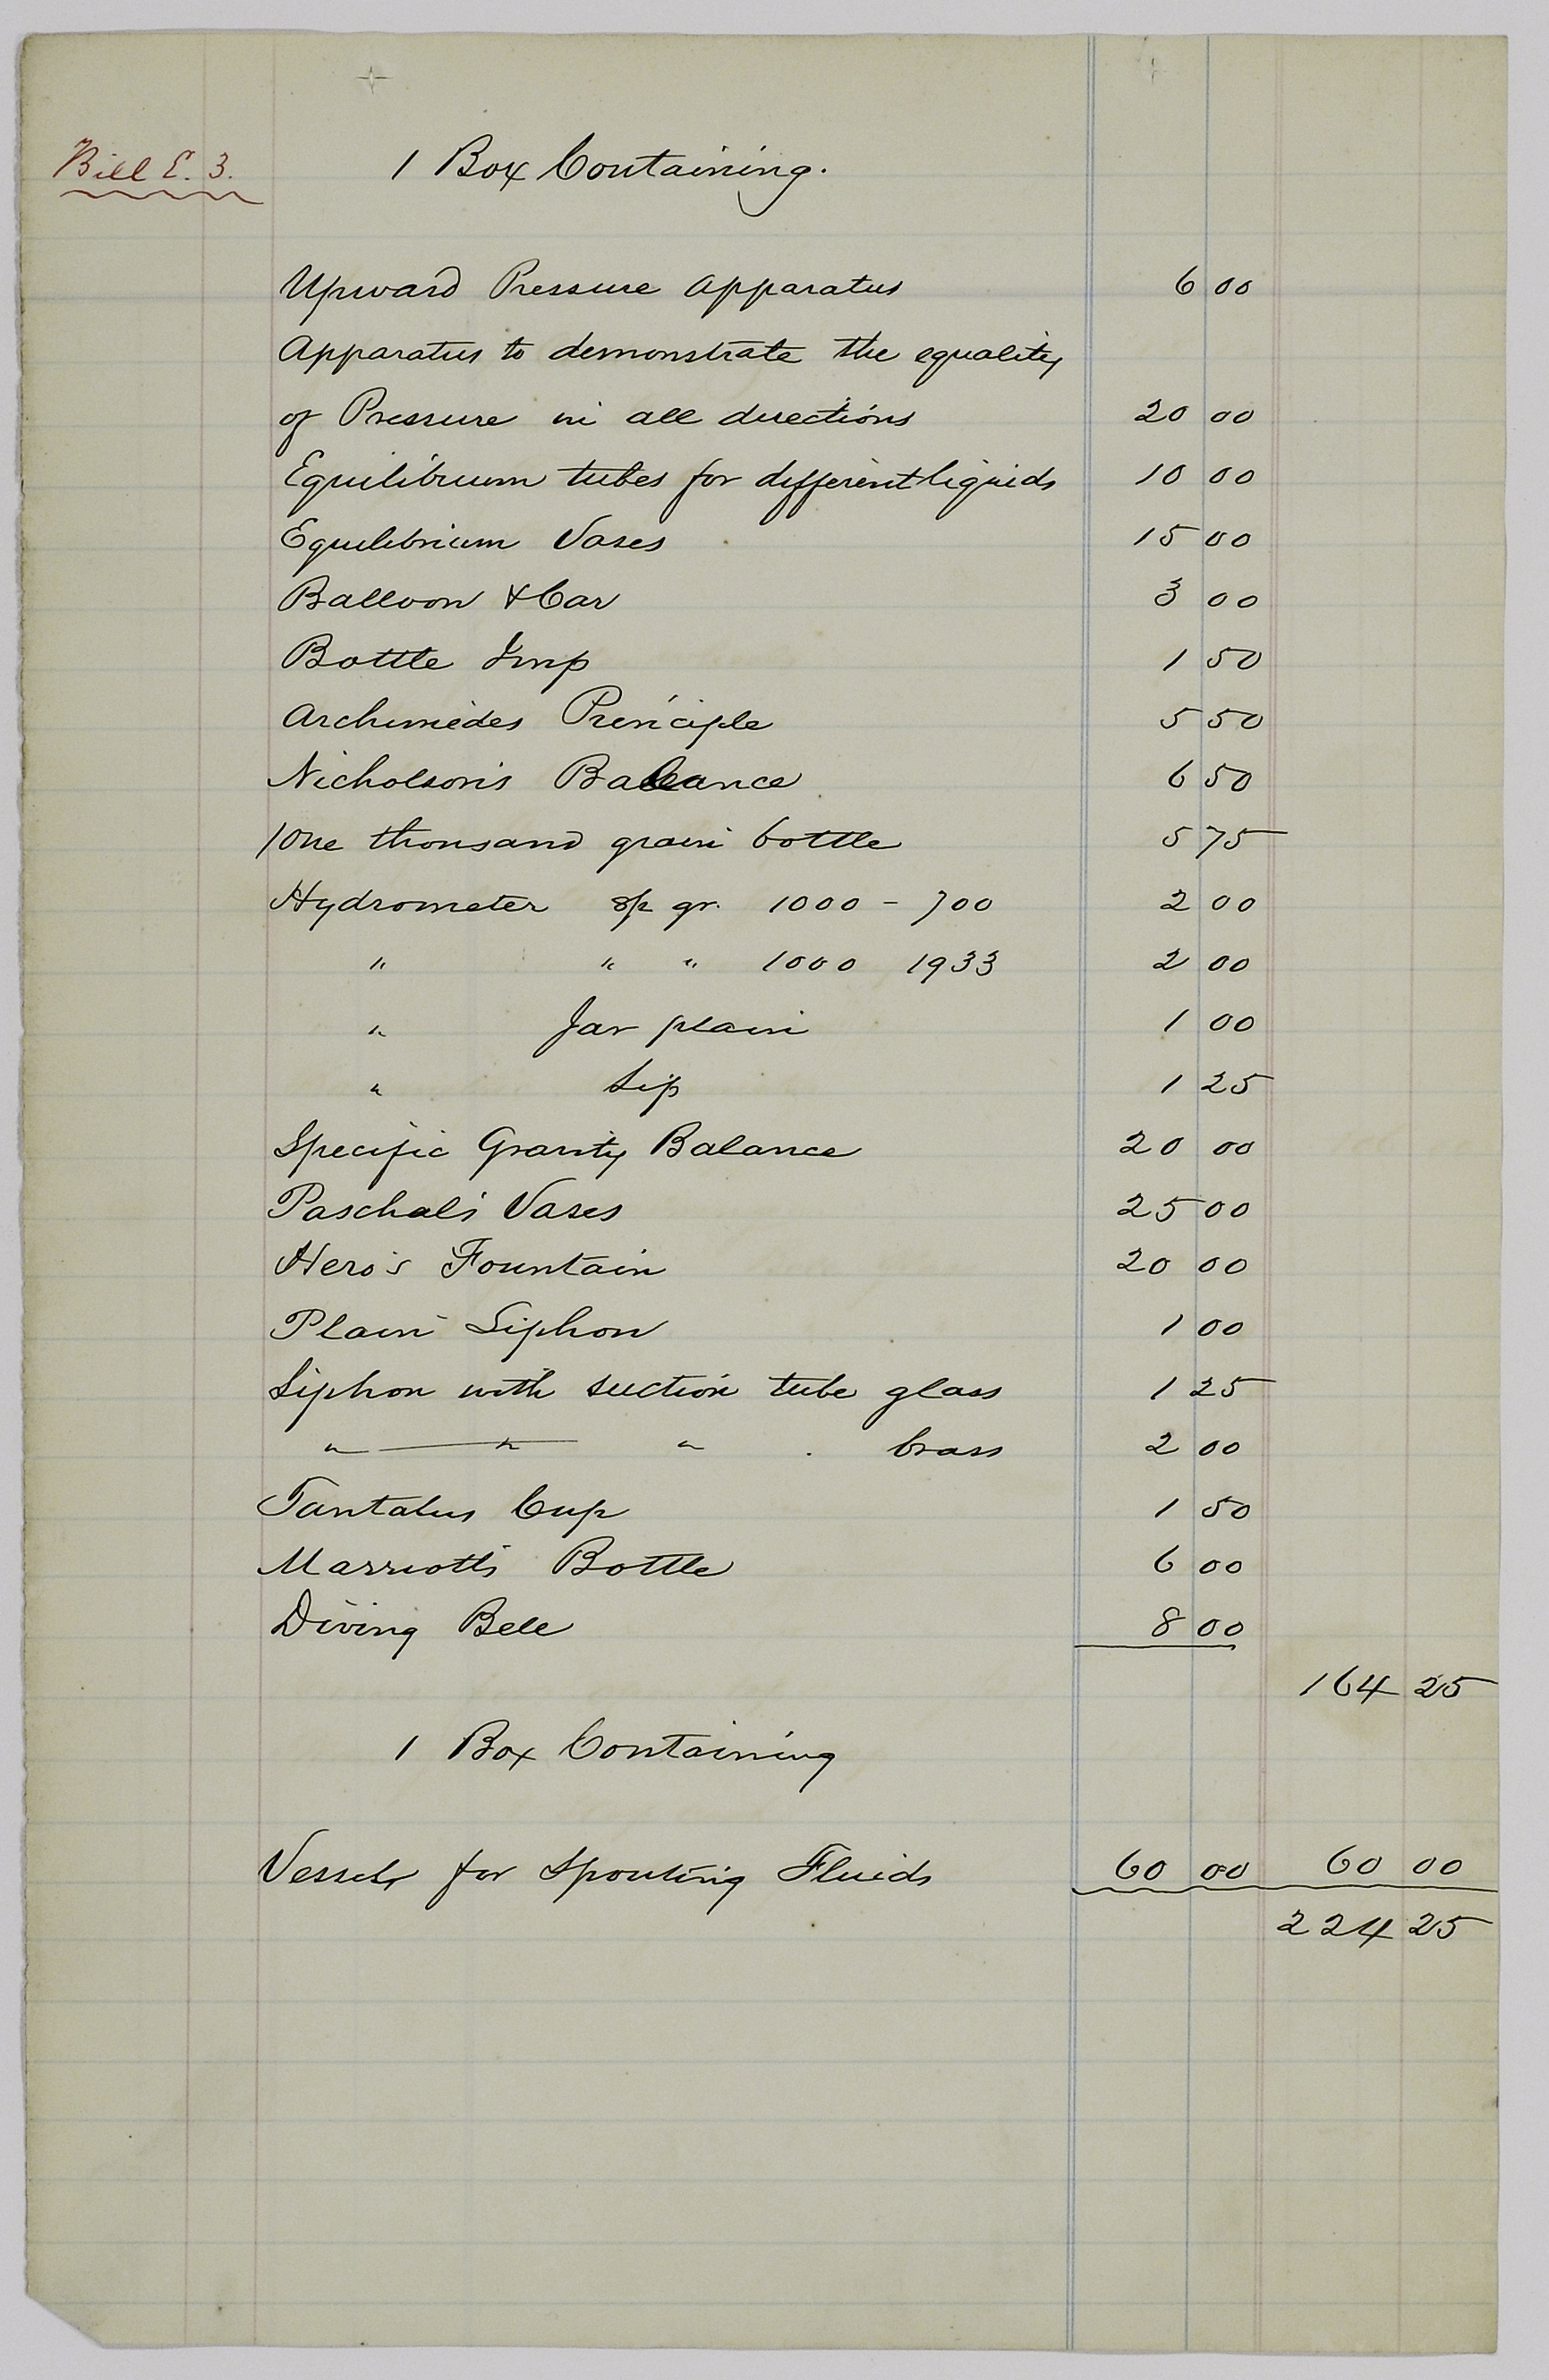 Bill E. 3. 1 Box Containing.
Upward Pressure Apparatus 6 00
Apparatus to demonstrate the equality
of Pressure in all directions 20 00
Equilibrium tubes for different liquids 10 00
Equilibrium Vases 15 00
Balloon & Car 3 00
Bottle Imp 1 50
Archimedes Principle 5 50
Nicholson's Balance 6 50
1 One thousand grain bottle 5 75
Hydrometer sp gr. 1000 - 700 2 00
" " " 1000 1933 2 00
" Jar plain 1 00
" Lip 1 25
Specific Gravity Balance 20 00
Paschal's Vases 25 00
Hero's Fountain 20 00
Plain Siphon 1 00
Siphon with suction tube glass 1 25
" — " " brass 2 00
Tantalus Cup 1 50
Marriott's Bottle 6 00
Diving Bell 8 00
164 25
1 Box Containing
Vessels for Spouting Fluids 60 00 60 00
224 25